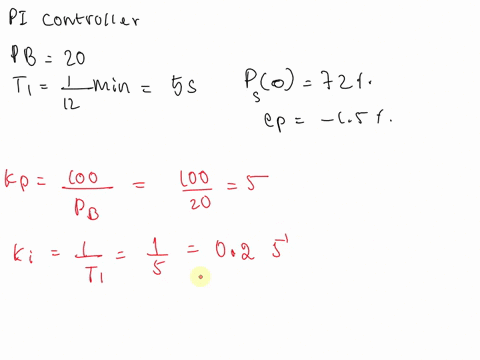 PI controller
PB = 20
TI = 1/12 min = 5s
Ps(0) = 72%.
ep = -1.5%.
Kp = 100/PB = 100/20 = 5
Ki = 1/TI = 1/5 = 0.2 s⁻¹